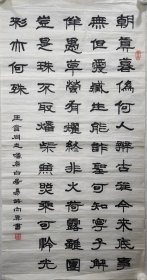 朝真暮偽何人辨古往今來底事
無但愛臧生能詐聖可知寧子解
佯愚草螢有耀終非火荷露雖團
豈是珠不取燔柴兼照乘可憐光
彩亦何殊
唐白居易詩 書